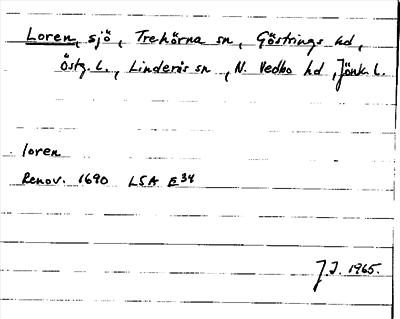 Loren, sjö, Trehörna sn, Göstrings hd,
Östg. l., Linderås sn, N. Vedbo hd, Jönk. l.
loren
Renov. 1690 LSA E34
J.I. 1965.